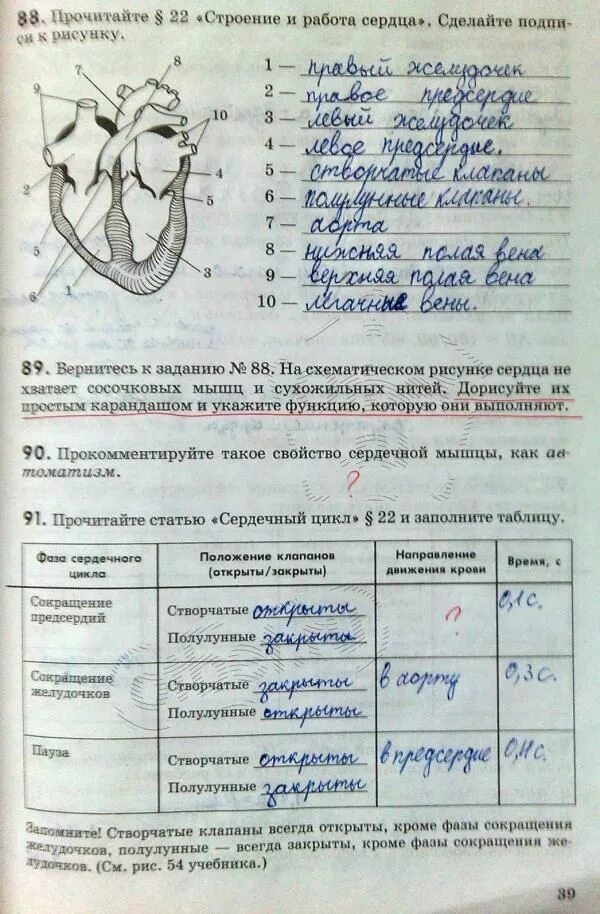 88. Прочитайте § 22 «Строение и работа сердца». Сделайте подпи-
си к рисунку.
8
7
9
10
2
4
5
5
3
6
1
1 — правый желудочек
2 — правое предсердие
3 — левый желудочек
4 — левое предсердие.
5 — створчатые клапаны
6 — полулунные клапаны.
7 — аорта
8 — нижняя полая вена
9 — верхняя полая вена
10 — легачные вены.
89. Вернитесь к заданию № 88. На схематическом рисунке сердца не
хватает сосочковых мышц и сухожильных нитей. Дорисуйте их
простым карандашом и укажите функцию, которую они выполняют.
90. Прокомментируйте такое свойство сердечной мышцы, как ав-
томатизм.
?
91. Прочитайте статью «Сердечный цикл» § 22 и заполните таблицу.
Фаза сердечного цикла Положение клапанов (открыты/закрыты) Направление движения крови Время, с
Сокращение предсердий
Створчатые открыты
Полулунные закрыты
?
0,1 с.
Сокращение желудочков
Створчатые закрыты
Полулунные открыты
в аорту
0,3 с.
Пауза
Створчатые открыты
Полулунные закрыты
в предсердие
0,4 с.
Запомните! Створчатые клапаны всегда открыты, кроме фазы сокращения
желудочков, полулунные — всегда закрыты, кроме фазы сокращения же-
лудочков. (См. рис. 54 учебника.)
39